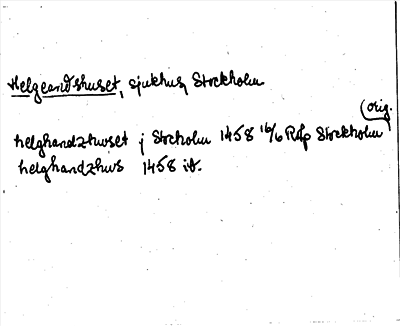 Helgeandshuset, sjukhus, Stockholm
(orig.
helghandzhuset j Stocholm 1458 16/6 RAp Stockholm
helghandzhus 1458 ib.